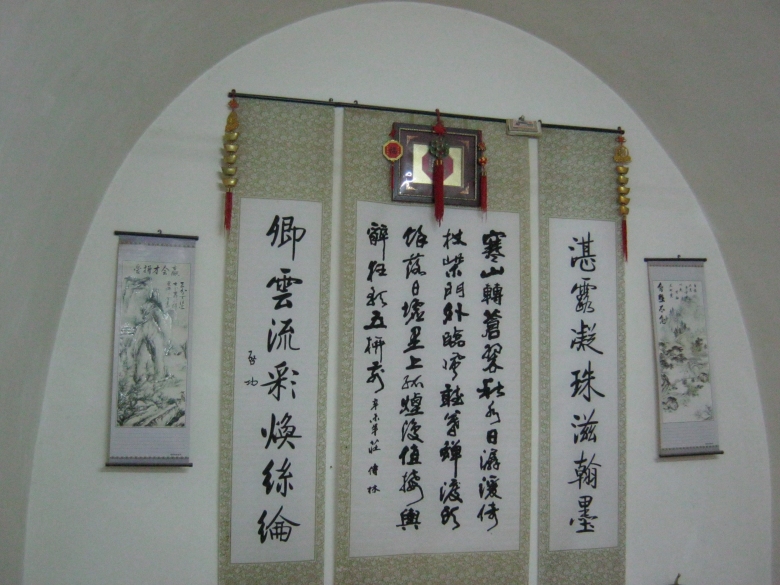 湛露凝珠滋翰墨
寒山轉蒼翠秋水日潺湲倚
杖柴門外臨風聽暮蟬渡頭
餘落日墟里上孤煙復值接輿
醉狂歌五柳前
辛未年
卿雲流彩煥絲綸
啟功